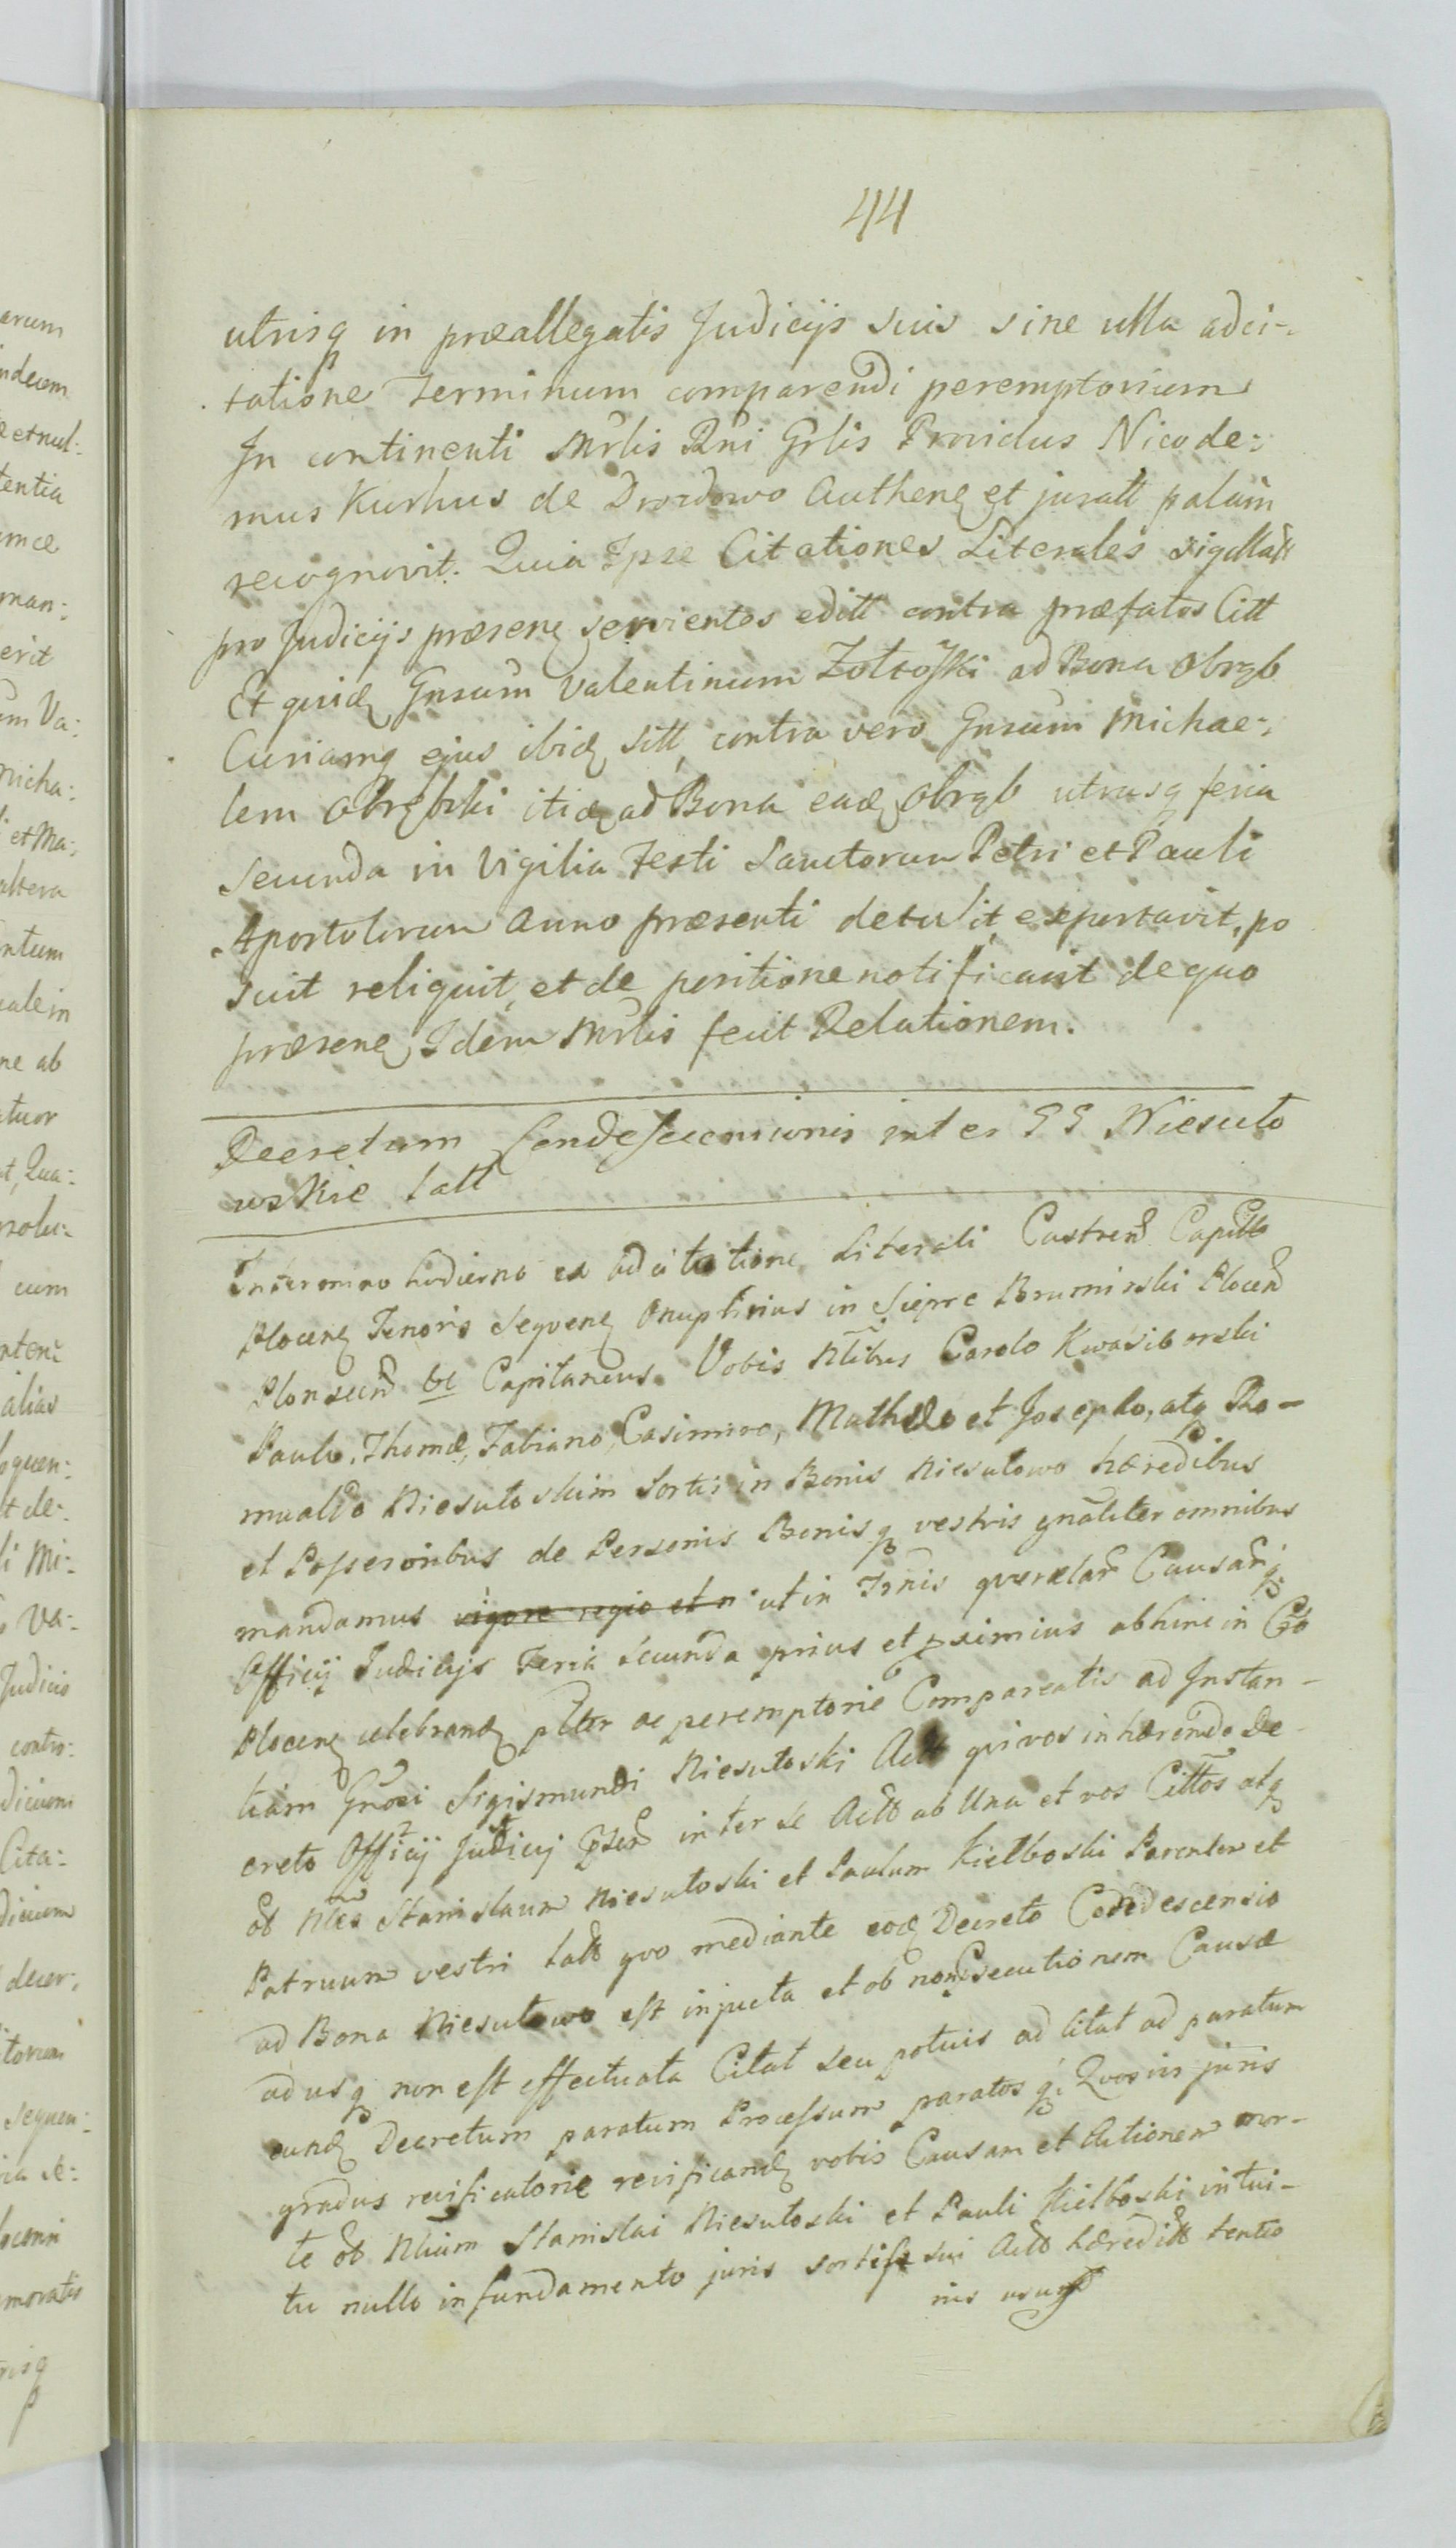 44
utrisq in præallegatis Judicijs suis sine ulla adci-
tatione Terminum comparendi peremptorium
In continenti Mrlis Rni Grlis Providus Nicode:
mus Kurhus de Drozdowo Authene et juratt palam
recognovit. Quia Ipse Citationes Literales sigillatt
pro Judicijs præsene servientes editt contra præfatos Citt
Et quide Gnsum Valentinum Zoltoski ad Bona Obrgb
Curiamq ejus ibid sitt, contra vero Gnsum Michae:
lem Obrgbski itid ad Bona ead Obrgb utrusq feria
Secunda in Vigilia Festi Sanctorum Petri et Pauli
Apostolorum Anno præsenti detulit, exportavit, po
suit reliquit, et de positione notificavit de quo
præsene Idem Mrlis fecit Relationem.
Decretum Condescensionis inter GG Niesuło
wskie latt
In termino hodierno ex adcitatione Literali Castren Capitt
Plocen Tenoris Sequen Onuphrius in Sieprc Brumirski Plocen
Plonscen &c Capitaneus. Vobis Nlibus Carolo Kwasiborski
Paulo, Thomæ, Fabiano, Casimiro, Mathæo et Josepho, atq Ro-
mualdo Niesułoskim Sortis in Bonis Niesułowo hæredibus
et Possessoribus de Personis Bonisq vestris gnaliter omnibus
mandamus vigore regio et n ut in Trnis querelar Causarq
Officij Judicijs Feria Secunda prius et pximius abhinc in Cro
Plocen celebrand plter ac peremptorie Compareatis ad Instan-
tiam Gnosi Sigismundi Niesułoski Act qui vos inhærendo De-
creto Officij Judicij Psen inter se Actt ab Una et vos Cittos atq
ob Nles Stanislaum Niesułoski et Paulum Kiełboski Parentem et
Patruum vestri latt quo mediante eod Decreto Condescensio
ad Bona Niesułowo est injuncta et ob non secutionem Causæ
adusq non est effectuata Citat seu potuis ad citat ad paratum
eund Decretum paratum Processum paratosq. Quosvis juris
gradus reificatorie reificand vobis Causam et Actionem mor-
te ob Nlium Stanislai Niesułoski et Pauli Kiełboski intui-
tu nullo in fundamento juris sortis sui Actt hæreditt tentio
nis